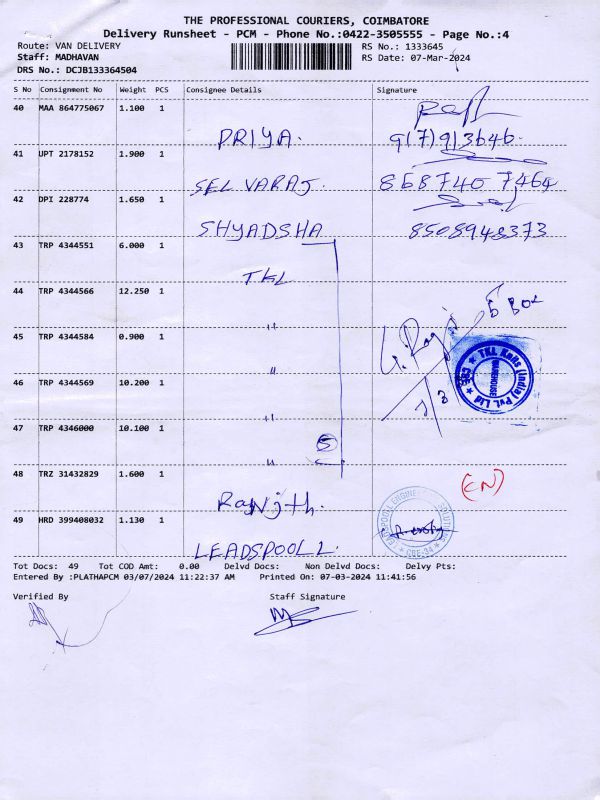 THE PROFESSIONAL COURIERS, COIMBATORE
Delivery Runsheet - PCM - Phone No.:0422-3505555 - Page No.:4
Route: VAN DELIVERY RS No.: 1333645
Staff: MADHAVAN RS Date: 07-Mar-2024
DRS No.: DCJB133364504
S No Consignment No Weight PCS Consignee Details Signature
40 MAA 864775067 1.100 1
PRIYA. 9(7)913646.
41 UPT 2178152 1.900 1
SELVARAJ. 868740 7464
42 DPI 228774 1.650 1
SHYADSHA 8508948373
43 TRP 4344551 6.000 1
TKL
44 TRP 4344566 12.250 1
"
45 TRP 4344584 0.900 1
"
TKL Knits (India) Pvt. Ltd
WAREHOUSE
CBE
46 TRP 4344569 10.200 1
"
47 TRP 4346000 10.100 1
5
"
48 TRZ 31432829 1.600 1
Ranjith. (CN)
49 HRD 399408032 1.130 1
LEADSPOOLL.
CBE-24
Tot Docs: 49 Tot COD Amt: 0.00 Delvd Docs: Non Delvd Docs: Delvy Pts:
Entered By :PLATHAPCM 03/07/2024 11:22:37 AM Printed On: 07-03-2024 11:41:56
Verified By Staff Signature